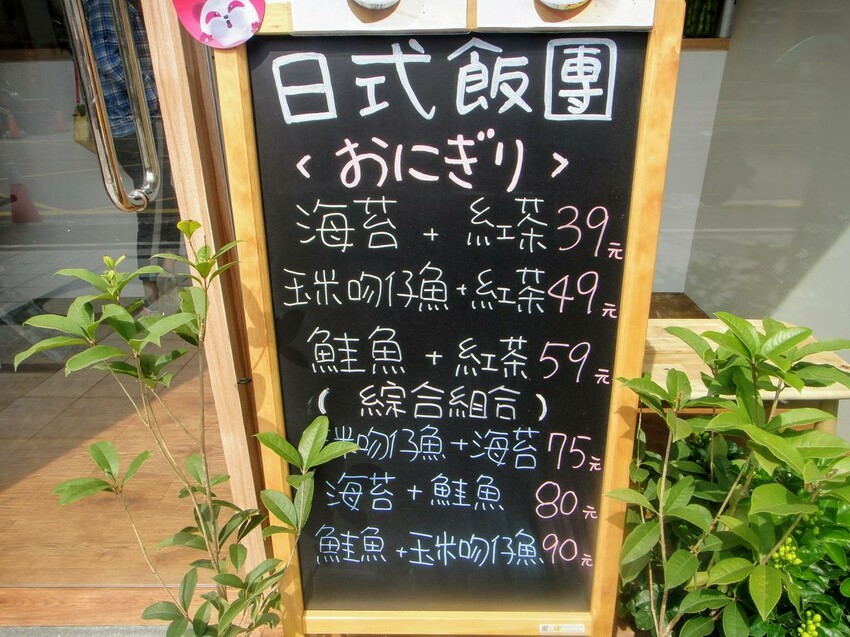 日式飯團
<おにぎり>
海苔 + 紅茶 39元
玉米吻仔魚+紅茶49元
鮭魚 + 紅茶 59元
(綜合組合)
米吻仔魚+海苔 75元
海苔+鮭魚 80元
鮭魚+玉米吻仔魚90元